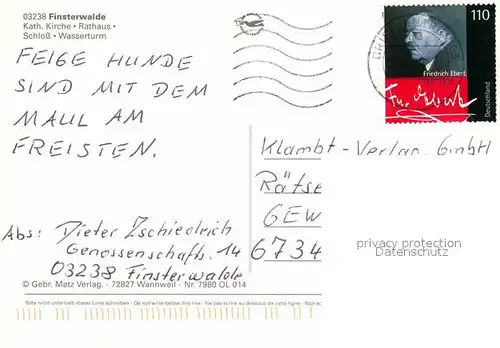 03238 Finsterwalde
Kath. Kirche • Rathaus •
Schloß • Wasserturm
FEIGE HUNDE
SIND MIT DEM
MAUL AM
FREISTEN.
Abs: Dieter Zschiedrich
Genossenschafts. 14
03238 Finsterwalde
© Gebr. Metz Verlag · 72827 Wannweil · Nr. 7980 OL 014
Bitte nicht unterhalb dieser Linie schreiben · Do not write below this line · Ne pas écrire au dessous de cette ligne · Non scriv
110
Friedrich Ebert
Deutschland
Fr. Ebert
Klambt-Verlag GmbH
Rätse
GEW
6734
privacy protection
Datenschutz